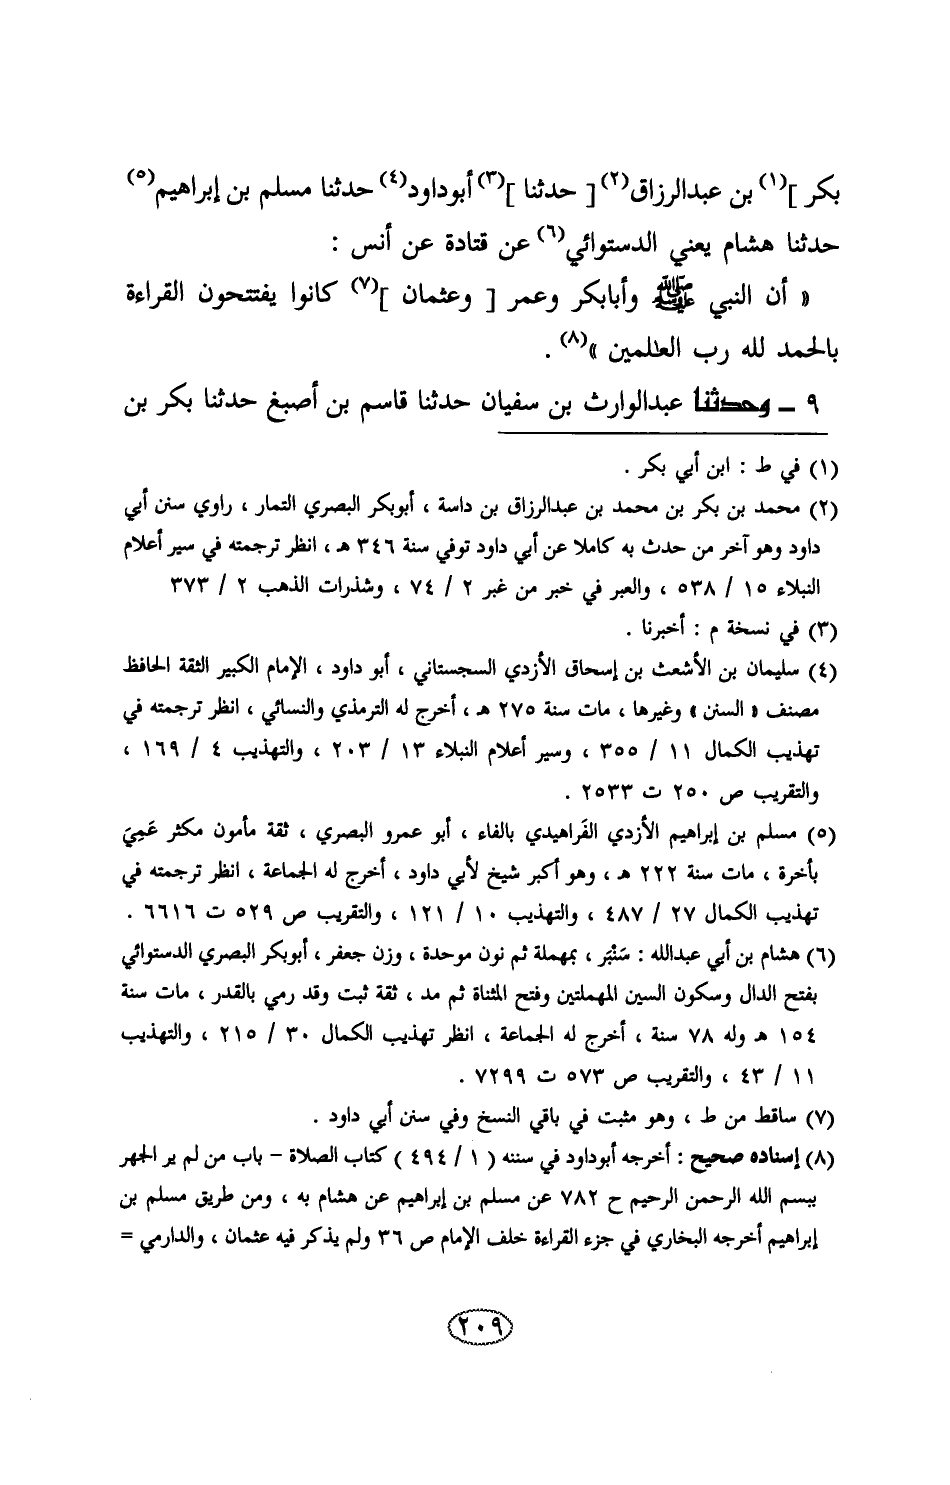 بكر ](١) بن عبدالرزاق(٢) [ حدثنا ](٣) أبوداود(٤) حدثنا مسلم بن إبراهيم(٥)
حدثنا هشام يعني الدستوائي(٦) عن قتادة عن أنس :
« أن النبي ﷺ وأبابكر وعمر [ وعثمان ](٧) كانوا يفتتحون القراءة
بالحمد لله رب العالمين »(٨) .
٩ ــ وحدثنا عبدالوارث بن سفيان حدثنا قاسم بن أصبغ حدثنا بكر بن
(١) في ط : ابن أبي بكر .
(٢) محمد بن بكر بن محمد بن عبدالرزاق بن داسة ، أبوبكر البصري التمار ، راوي سنن أبي
داود وهو آخر من حدث به كاملا عن أبي داود توفي سنة ٣٤٦ هـ ، انظر ترجمته في سير أعلام
النبلاء ١٥ / ٥٣٨ ، والعبر في خبر من غبر ٢ / ٧٤ ، وشذرات الذهب ٢ / ٣٧٣
(٣) في نسخة م : أخبرنا .
(٤) سليمان بن الأشعث بن إسحاق الأزدي السجستاني ، أبو داود ، الإمام الكبير الثقة الحافظ
مصنف « السنن » وغيرها ، مات سنة ٢٧٥ هـ ، أخرج له الترمذي والنسائي ، انظر ترجمته في
تهذيب الكمال ١١ / ٣٥٥ ، وسير أعلام النبلاء ١٣ / ٢٠٣ ، والتهذيب ٤ / ١٦٩ ،
والتقريب ص ٢٥٠ ت ٢٥٣٣ .
(٥) مسلم بن إبراهيم الأزدي الفَراهيدي بالفاء ، أبو عمرو البصري ، ثقة مأمون مكثر عَمِيَ
بأخرة ، مات سنة ٢٢٢ هـ ، وهو أكبر شيخ لأبي داود ، أخرج له الجماعة ، انظر ترجمته في
تهذيب الكمال ٢٧ / ٤٨٧ ، والتهذيب ١٠ / ١٢١ ، والتقريب ص ٥٢٩ ت ٦٦١٦ .
(٦) هشام بن أبي عبدالله : سَنْبَر ، بمهملة ثم نون موحدة ، وزن جعفر ، أبوبكر البصري الدستوائي
بفتح الدال وسكون السين المهملتين وفتح المثناة ثم مد ، ثقة ثبت وقد رمي بالقدر ، مات سنة
١٥٤ هـ وله ٧٨ سنة ، أخرج له الجماعة ، انظر تهذيب الكمال ٣٠ / ٢١٥ ، والتهذيب
١١ / ٤٣ ، والتقريب ص ٥٧٣ ت ٧٢٩٩ .
(٧) ساقط من ط ، وهو مثبت في باقي النسخ وفي سنن أبي داود .
(٨) إسناده صحيح : أخرجه أبوداود في سننه ( ١ / ٤٩٤ ) كتاب الصلاة – باب من لم ير الجهر
ببسم الله الرحمن الرحيم ح ٧٨٢ عن مسلم بن إبراهيم عن هشام به ، ومن طريق مسلم بن
إبراهيم أخرجه البخاري في جزء القراءة خلف الإمام ص ٣٦ ولم يذكر فيه عثمان ، والدارمي =
٢٠٩